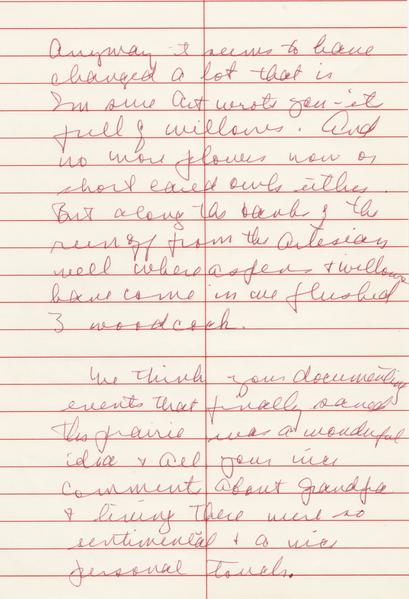 Anyway it seems to have
changed a lot that is
I'm sure Art wrote you - it
full of willows. And
no more plovers now or
short eared owls either.
But along the banks of the
runoff from the Artesian
well where aspens & willows
have come in we flushed
3 woodcock.
We think your documenting
events that finally saved
the prairie was a wonderful
idea & all your nice
comments about Grandpa
& living there were so
sentimental & a nice
personal touch.